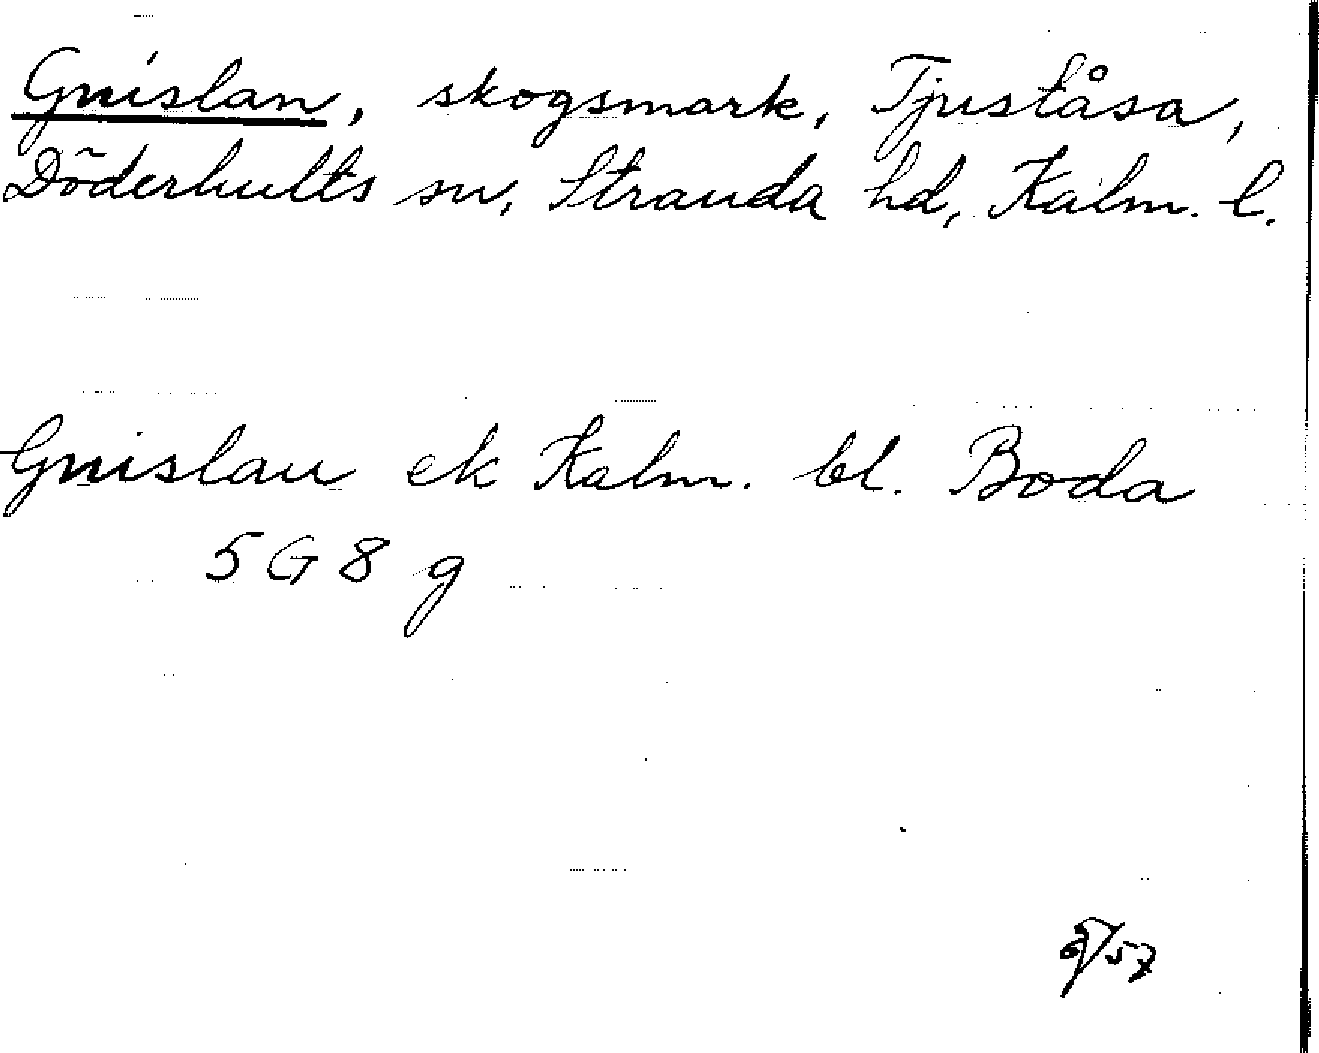 Gnislan, skogsmark, Tjuståsa,
Döderhults sn, Stranda hd, Kalm. l.
Gnislan ek Kalm. bl. Boda
5 G 8 g
/57